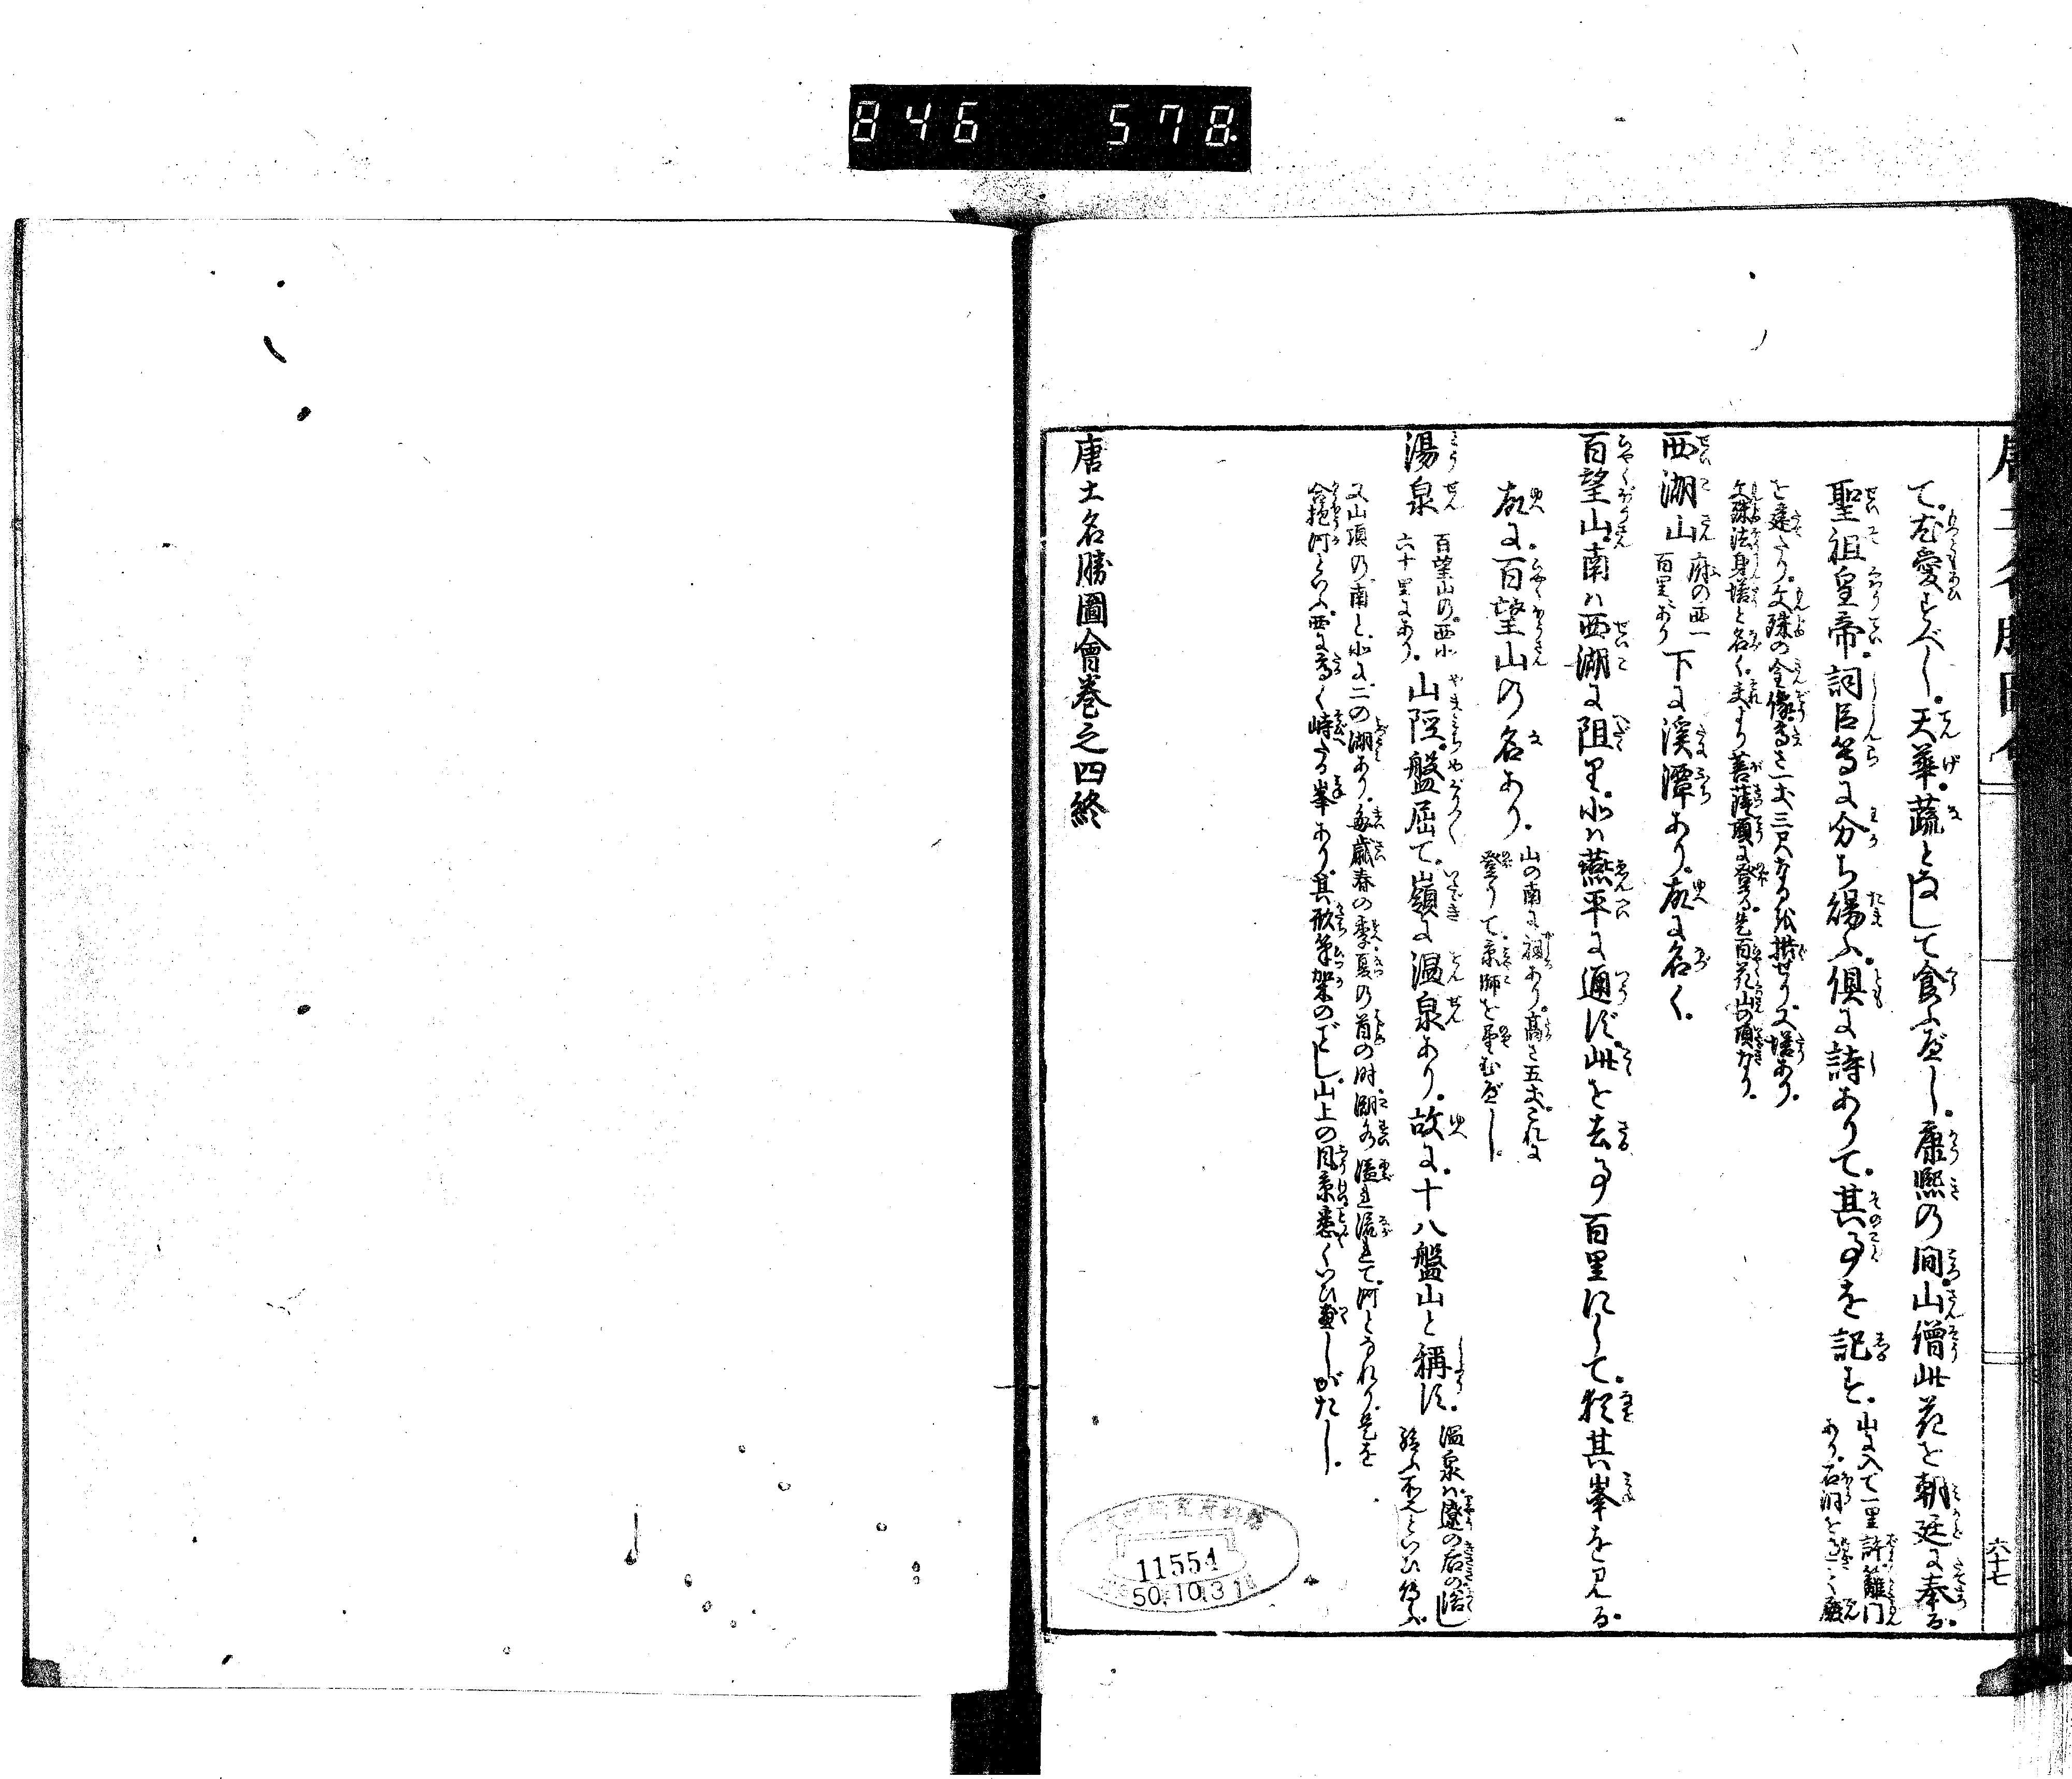 846 578
唐土名勝圖會
六十七
て尤愛すべし。天華蔬となして食ふべし。康熙の間山僧此花を朝廷に奉る。
聖祖皇帝。詞臣等に分ち賜ふ。倶に詩ありて。其事を記す。
山に入て一里許籬門
あり。石洞を
を建たり。文殊の金像高さ一丈三尺なるを安せり。又塔あり。
文殊法身塔と名く。夫より菩薩頂に登る。是百花山の頂なり。
西湖山
府の西一
百里にあり
下に溪潭あり。故に名く。
百望山南は西湖に阻り。北は燕平に通ず。此を去る事百里にして。猶其峯を見る。
故に。百望山の名あり。
山の南に祠あり。高さ五丈。これに
登りて。京師を望むべし。
湯泉
百望山の。西北
六十里にあり。
山陘。盤屈て。嶺に温泉あり。故に。十八盤山と稱す。
温泉は。遼の后の浴し
給ふ所なりといひ傳ふ。
又山頂の。南と。北に。二の湖あり。毎歳春の季。夏の首の時。湖水溢れ流れて。河となれり。是を
合抱河といふ。西に高く峙たる峯あり。其形筆架のごとし。山上の風景悉くいひ盡しがたし。
唐土名勝圖會巻之四終
11554
50.10.31